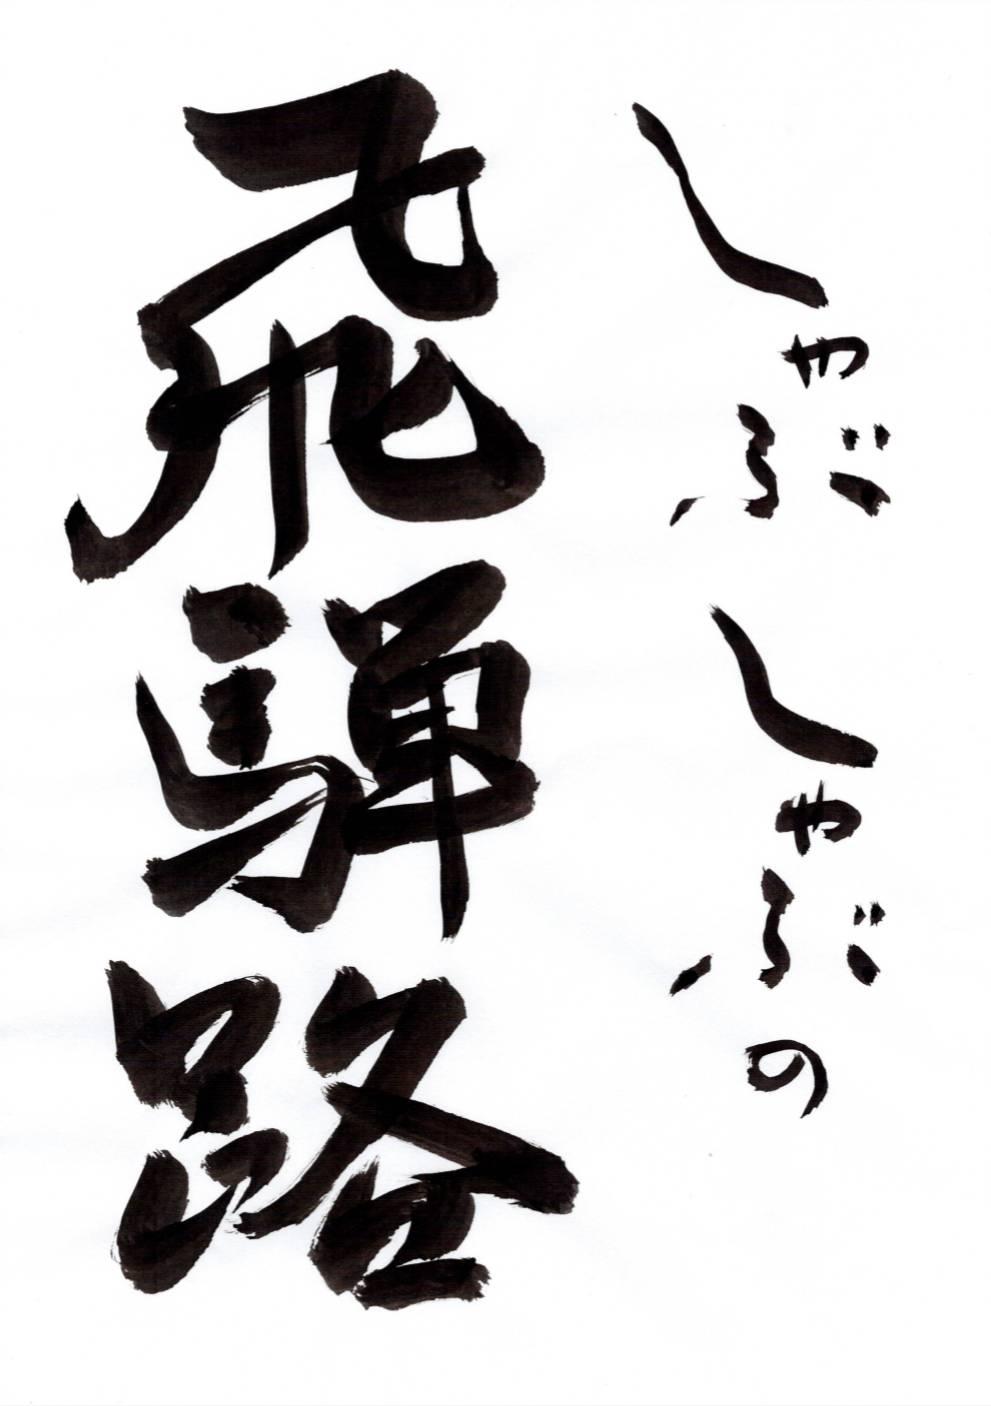 しゃぶしゃぶの
飛騨路